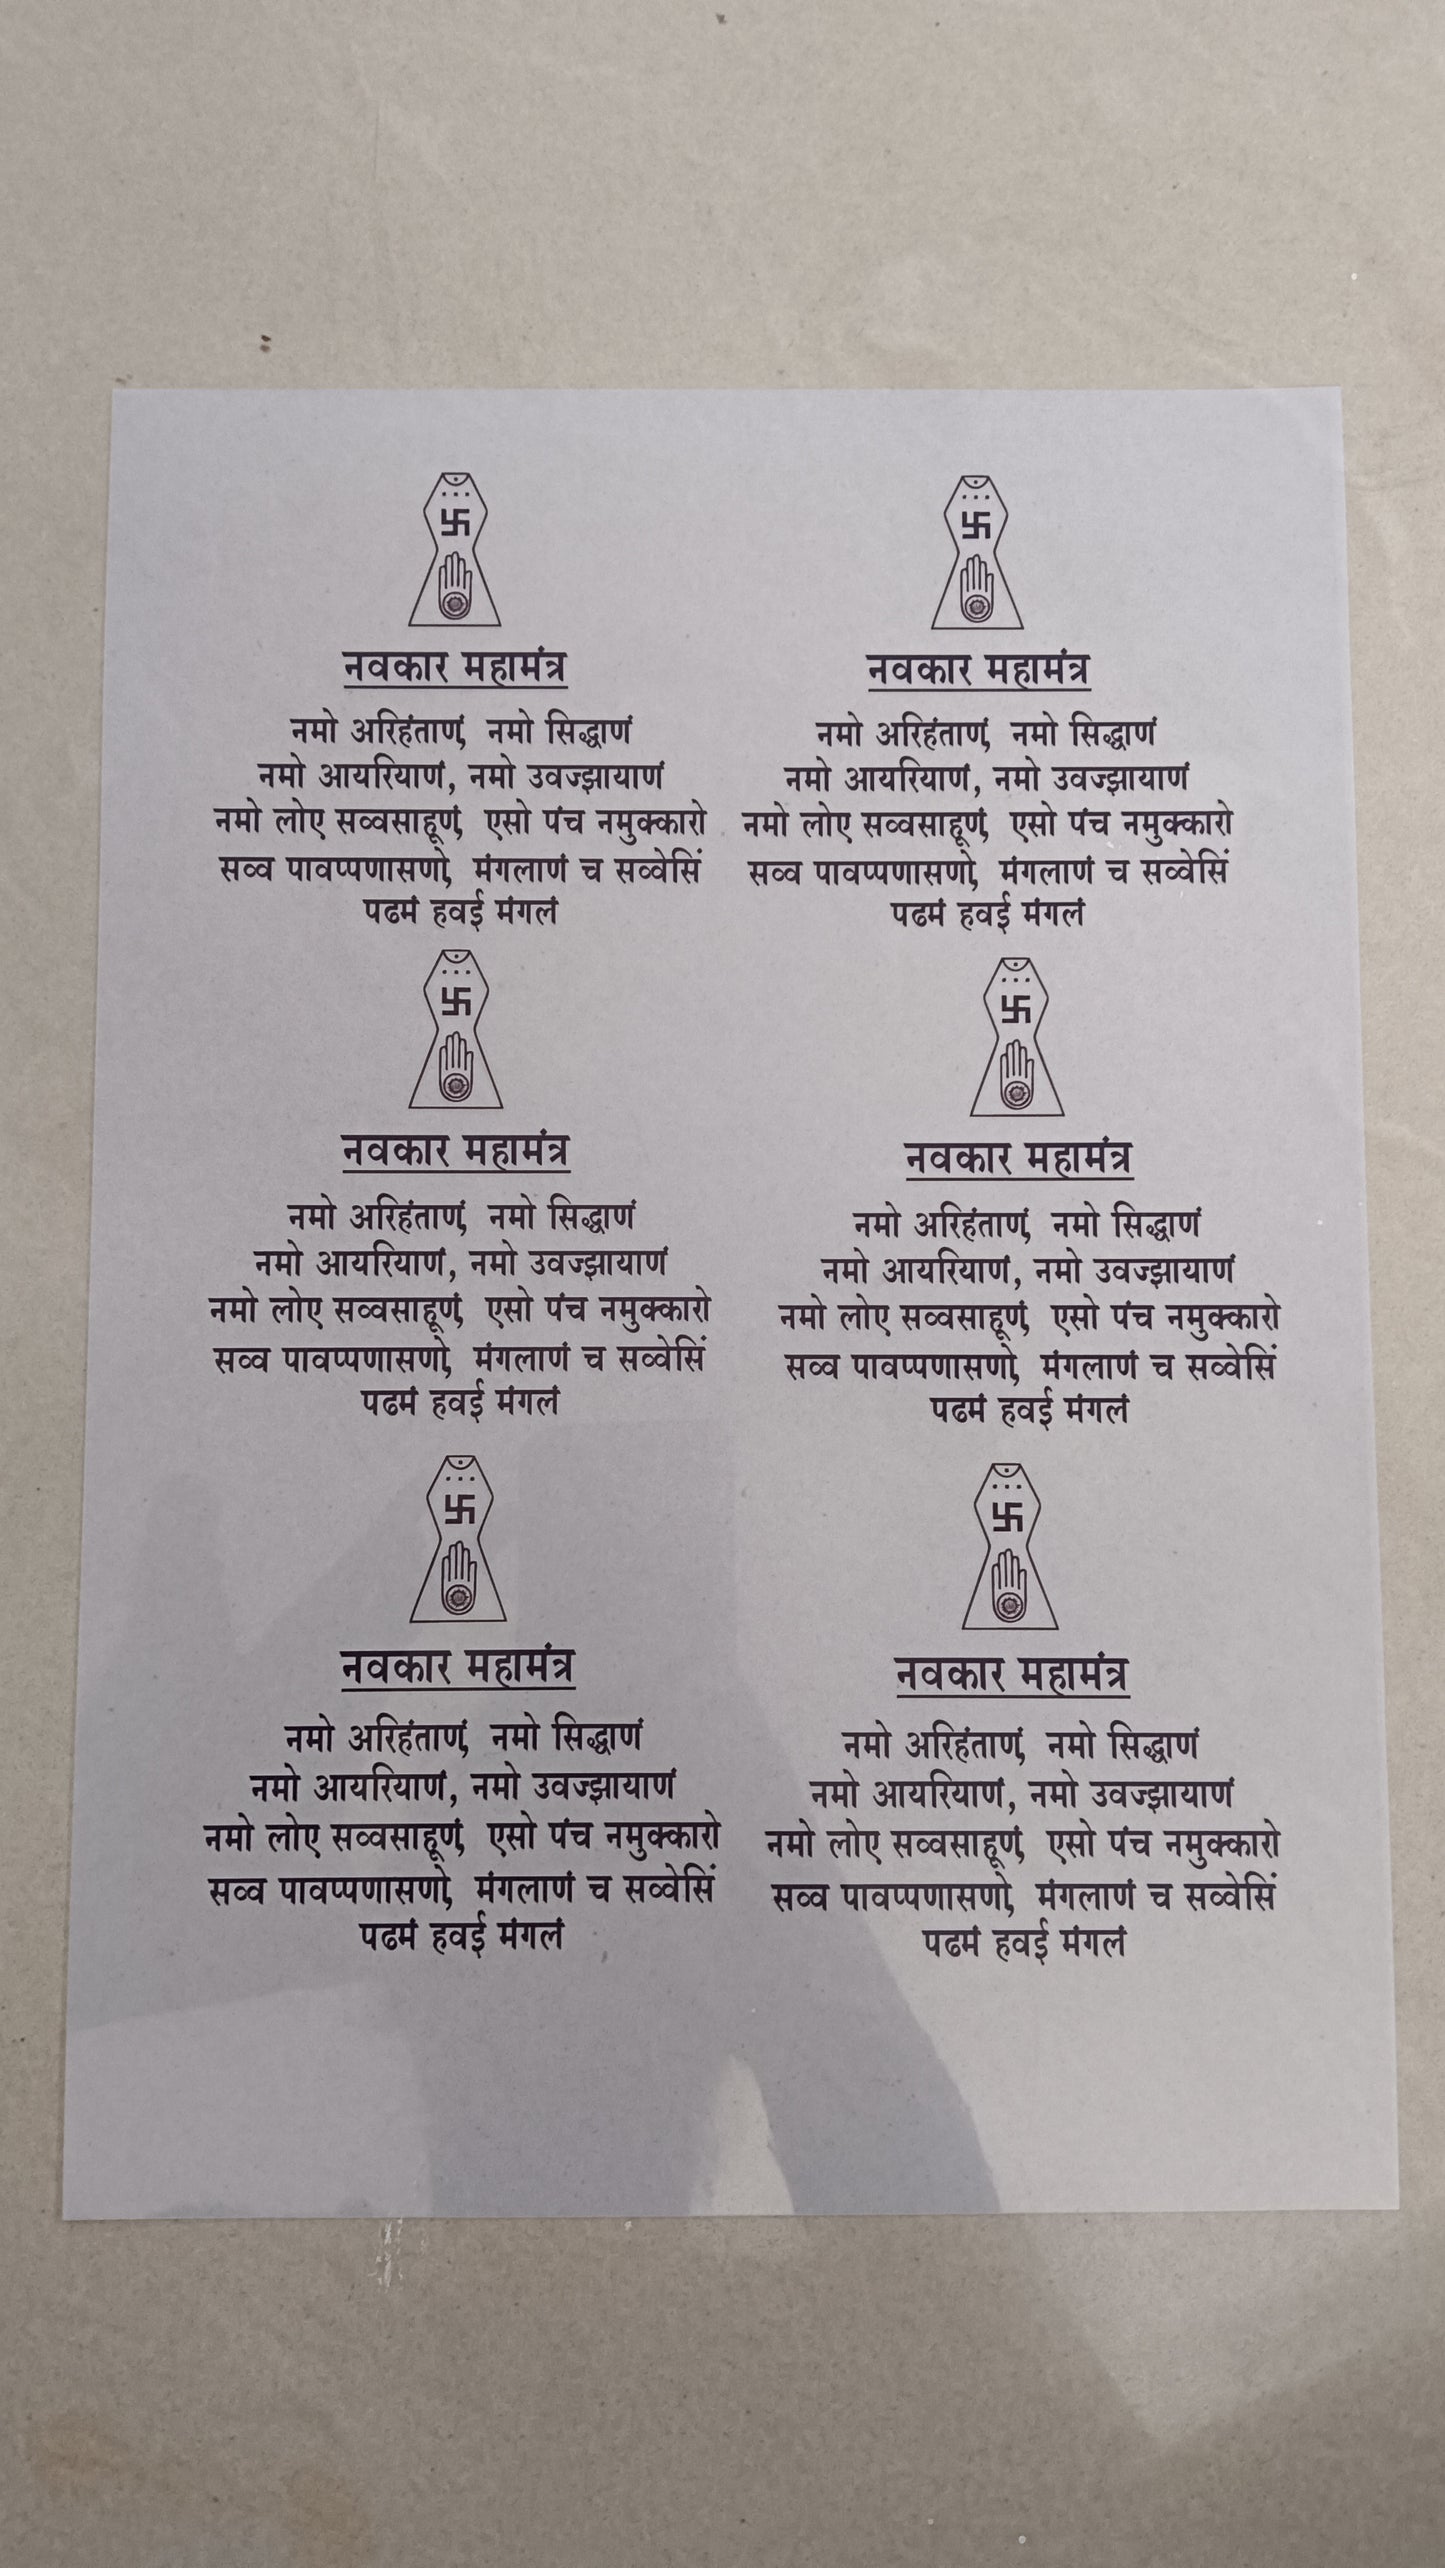 नवकार महामंत्र
नमो अरिहंताणं, नमो सिद्धाणं
नमो आयरियाणं, नमो उवज्झायाणं
नमो लोए सव्वसाहूणं, एसो पंच नमुक्कारो
सव्व पावप्पणासणो, मंगलाणं च सव्वेसिं
पढमं हवई मंगलं
नवकार महामंत्र
नमो अरिहंताणं, नमो सिद्धाणं
नमो आयरियाणं, नमो उवज्झायाणं
नमो लोए सव्वसाहूणं, एसो पंच नमुक्कारो
सव्व पावप्पणासणो, मंगलाणं च सव्वेसिं
पढमं हवई मंगलं
नवकार महामंत्र
नमो अरिहंताणं, नमो सिद्धाणं
नमो आयरियाणं, नमो उवज्झायाणं
नमो लोए सव्वसाहूणं, एसो पंच नमुक्कारो
सव्व पावप्पणासणो, मंगलाणं च सव्वेसिं
पढमं हवई मंगलं
नवकार महामंत्र
नमो अरिहंताणं, नमो सिद्धाणं
नमो आयरियाणं, नमो उवज्झायाणं
नमो लोए सव्वसाहूणं, एसो पंच नमुक्कारो
सव्व पावप्पणासणो, मंगलाणं च सव्वेसिं
पढमं हवई मंगलं
नवकार महामंत्र
नमो अरिहंताणं, नमो सिद्धाणं
नमो आयरियाणं, नमो उवज्झायाणं
नमो लोए सव्वसाहूणं, एसो पंच नमुक्कारो
सव्व पावप्पणासणो, मंगलाणं च सव्वेसिं
पढमं हवई मंगलं
नवकार महामंत्र
नमो अरिहंताणं, नमो सिद्धाणं
नमो आयरियाणं, नमो उवज्झायाणं
नमो लोए सव्वसाहूणं, एसो पंच नमुक्कारो
सव्व पावप्पणासणो, मंगलाणं च सव्वेसिं
पढमं हवई मंगलं